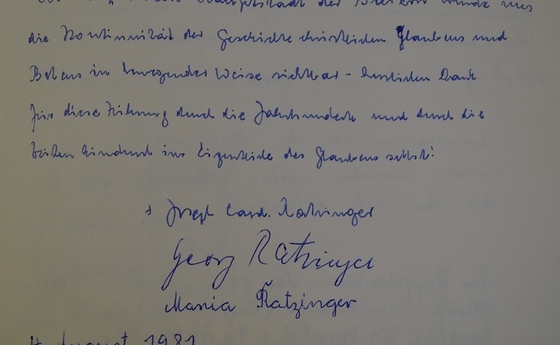 Hauptstadt der Bretonen wurde uns
die Kontinuität der Geschichte christlichen Glaubens und
Betens in bewegender Weise sichtbar - herzlichen Dank
für diese Führung durch die Jahrhunderte und durch die
Zeiten hindurch ins Eigentliche des Glaubens selbst!
+ Joseph Card. Ratzinger
Georg Ratzinger
Maria Ratzinger
August 1981